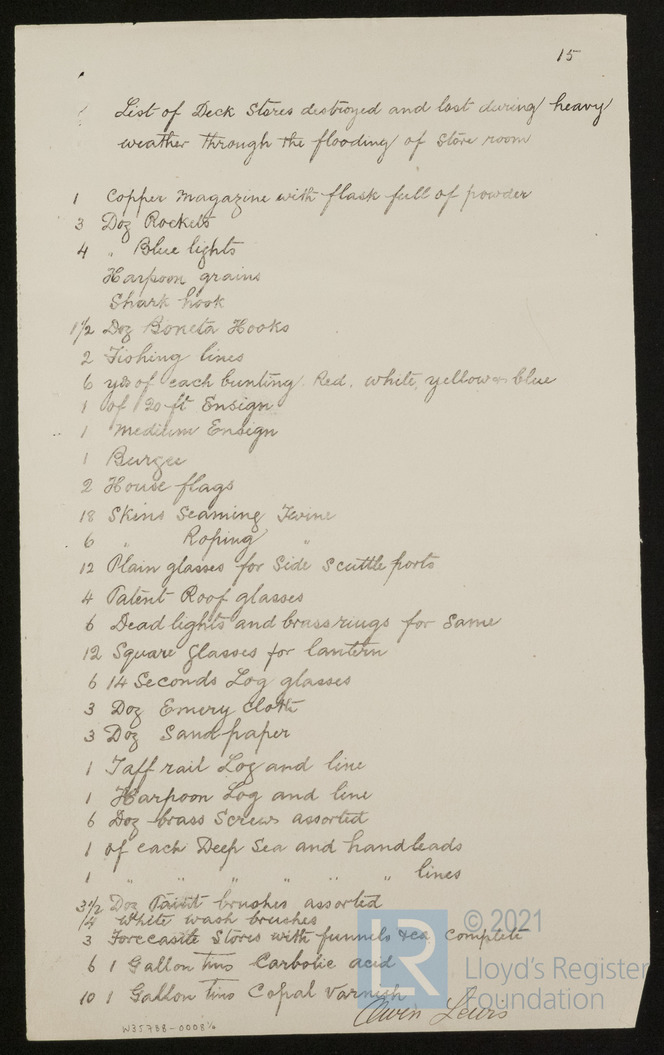 15
List of Deck Stores destroyed and lost during heavy
weather through the flooding of Store room
1 Copper Magazine with flask full of powder
3 Doz Rockets
4 " Blue lights
Harpoon grains
Shark hook
1 1/2 Doz Boneta Hooks
2 Fishing lines
6 yds of each bunting. Red, white, yellow & blue
1 of 20 ft Ensign
1 Medium Ensign
1 Burgee
2 House flags
18 Skins Seaming Twine
6 " Roping "
12 Plain glasses for Side Scuttle ports
4 Patent Roof glasses
6 Dead lights and brass rings for Same
12 Square glasses for lantern
6 14 Seconds Log glasses
3 Doz Emery cloth
3 Doz Sand paper
1 Taff rail Log and line
1 Harpoon Log and line
6 Doz brass Screws assorted
1 of each Deep Sea and handleads
1 " " " " " " lines
3 1/2 Doz Paint brushes assorted
1/4 White wash brushes
3 Forecastle Stoves with funnels &ca complete
6 1 Gallon tins Carbolic acid
10 1 Gallon tins Copal Varnish
Owen Lewis
W35788-0008 1/6
LR
© 2021
Lloyd's Register
Foundation